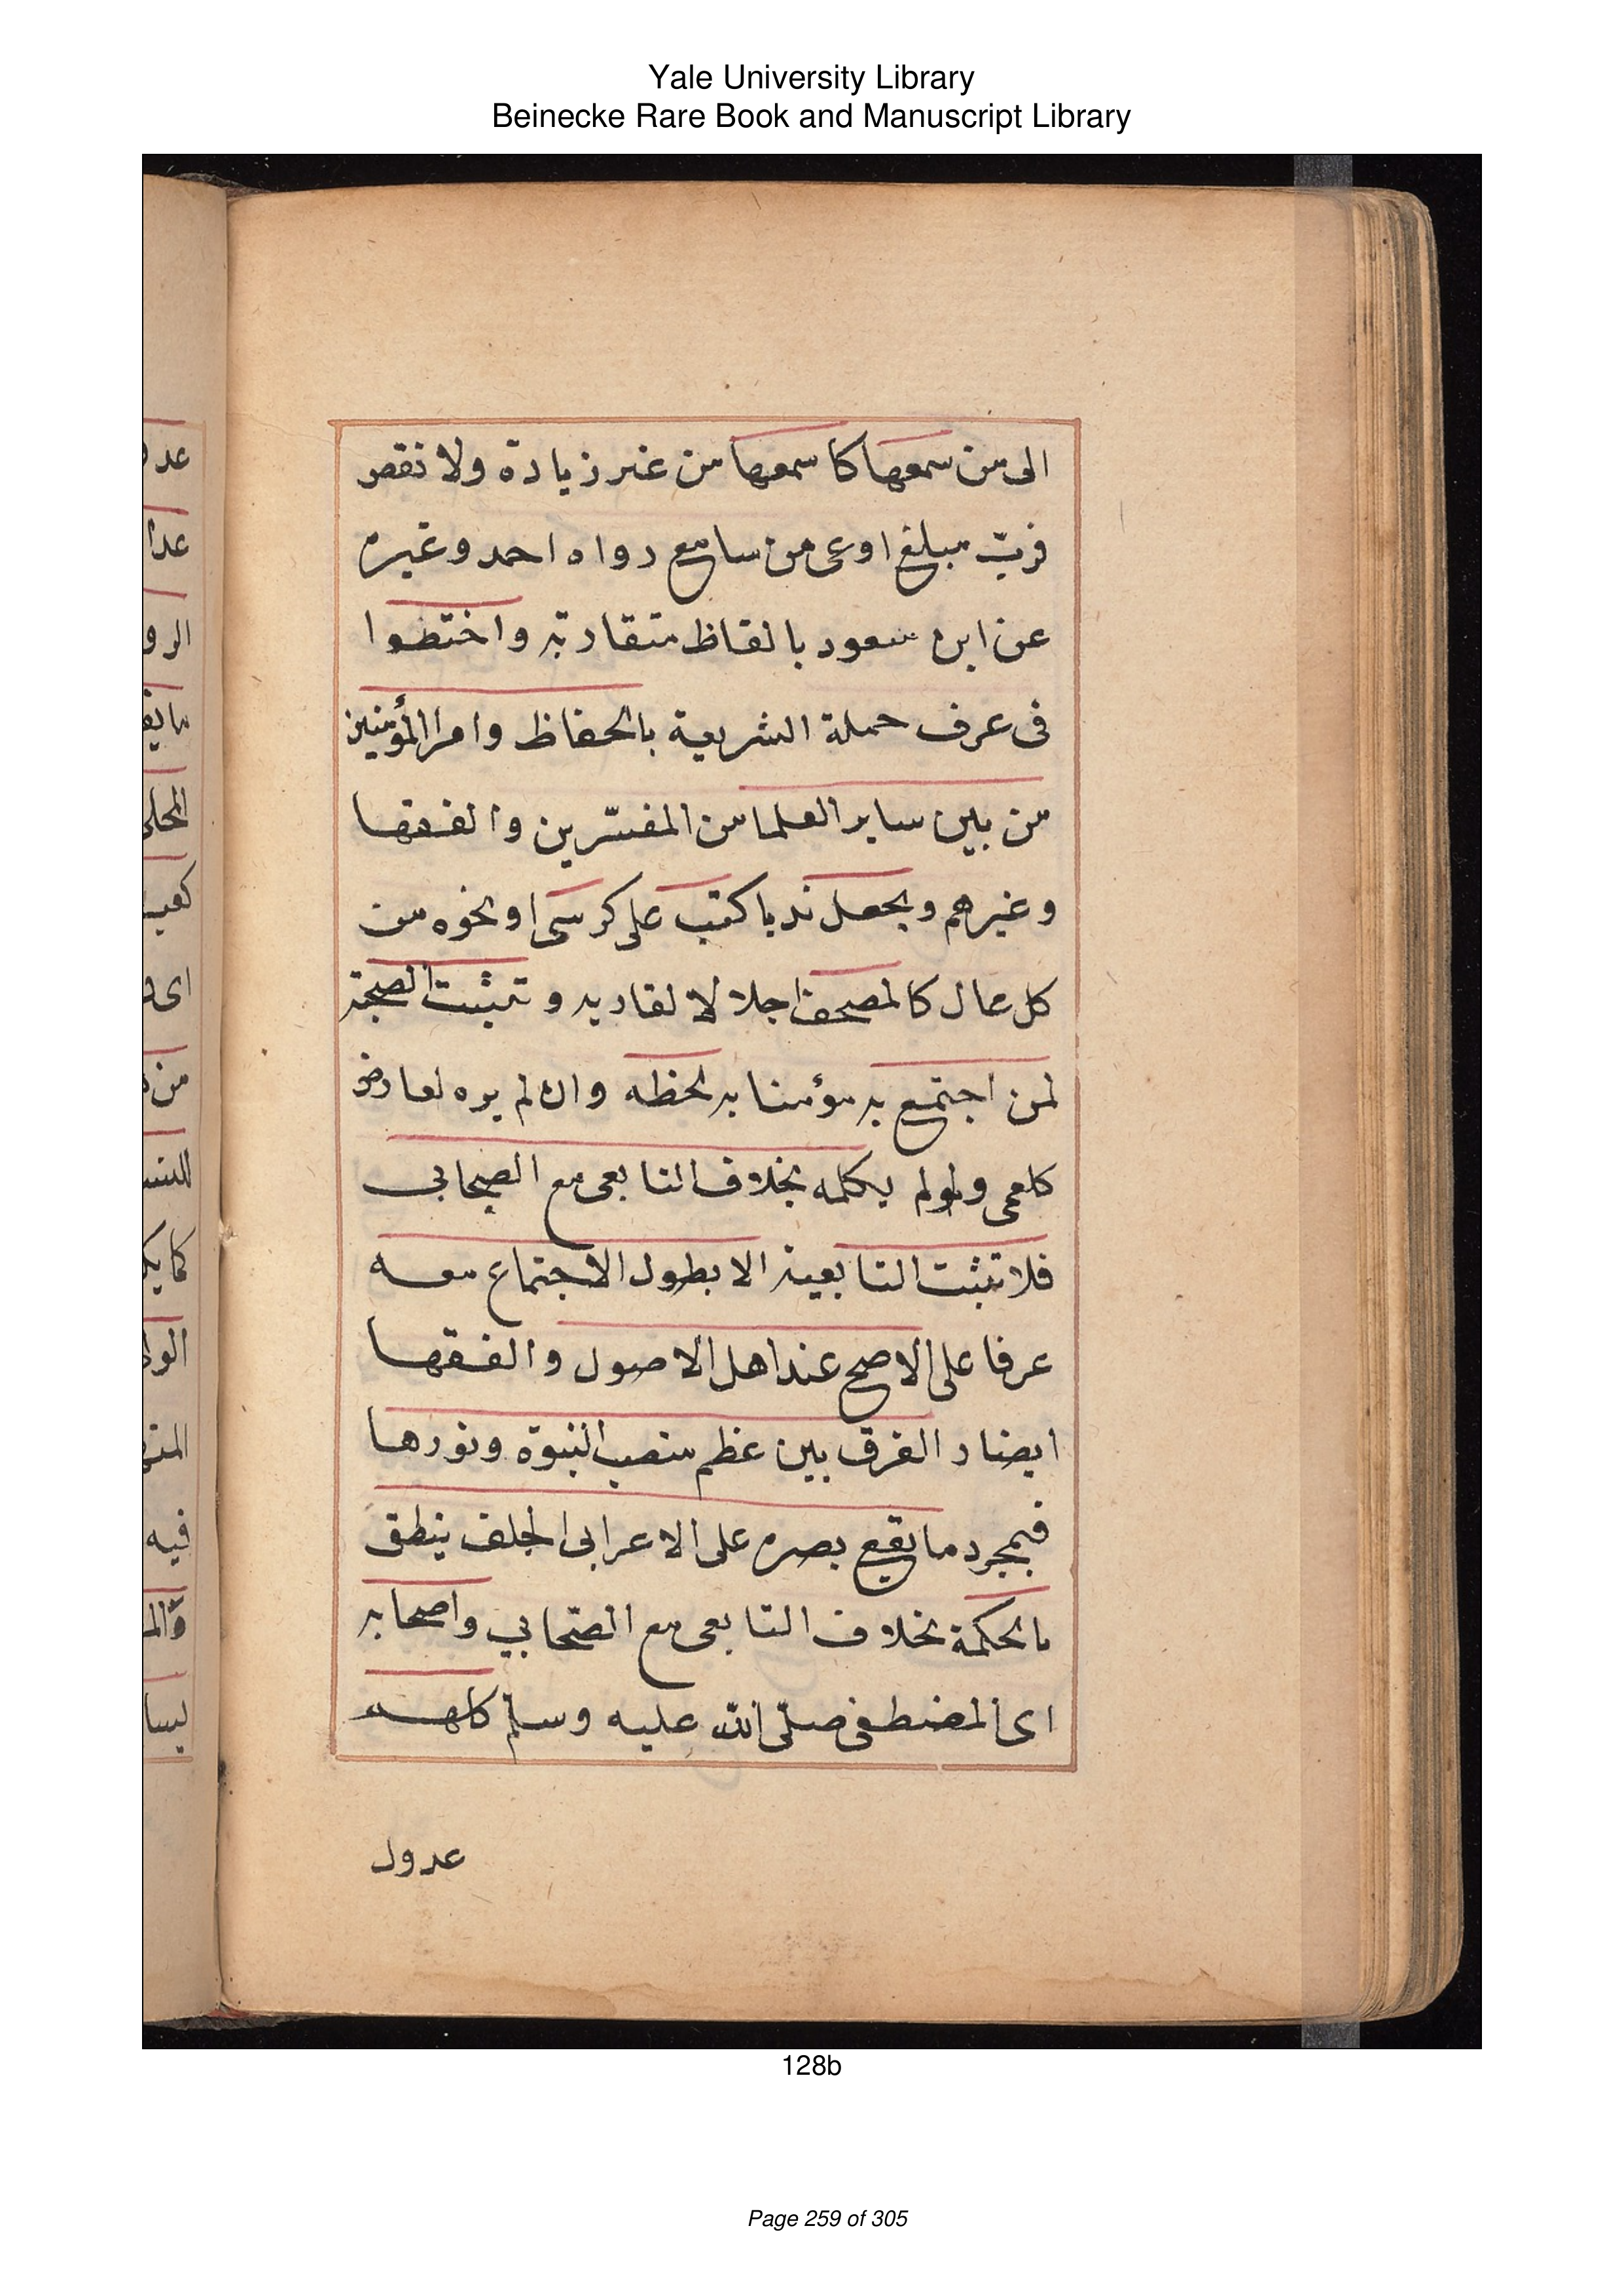 Yale University Library
Beinecke Rare Book and Manuscript Library
الى من سمعها كما سمعها من غير زيادة ولا نقص
فربّ مبلغ اوعى من سامع رواه احمد وغيره
عن ابن مسعود بالفاظ متقاربة واختصوا
فى عرف حملة الشريعة بالحفاظ وامرا المؤمنين
من بين ساير العلما من المفسّرين والفقها
وغيرهم ويجعل ندبا كتب على كرسى او نحوه من
كل عال كالمصحف اجلالا لقاريه وتثبت الصحبة
لمن اجتمع به مؤمنا به لحظه وان لم يره لعارض
كاعمى ولولم يكلمه بخلاف التابعى مع الصحابى
فلا تثبت التابعية الا بطول الاجتماع معه
عرفا على الاصح عند اهل الاصول والفقها
ايضا و الفرق بين عظم منصب النبوة ونورها
فبمجرد ما يقع بصره على الاعرابى الجلف ينطق
بالحكمة بخلاف التابعى مع الصّحابي واصحابه
اى المصطفى صلّى الله عليه وسلم كلهم
عدول
عدا
الرو
المحلى
اى و
كما يك
فيه
128b
Page 259 of 305